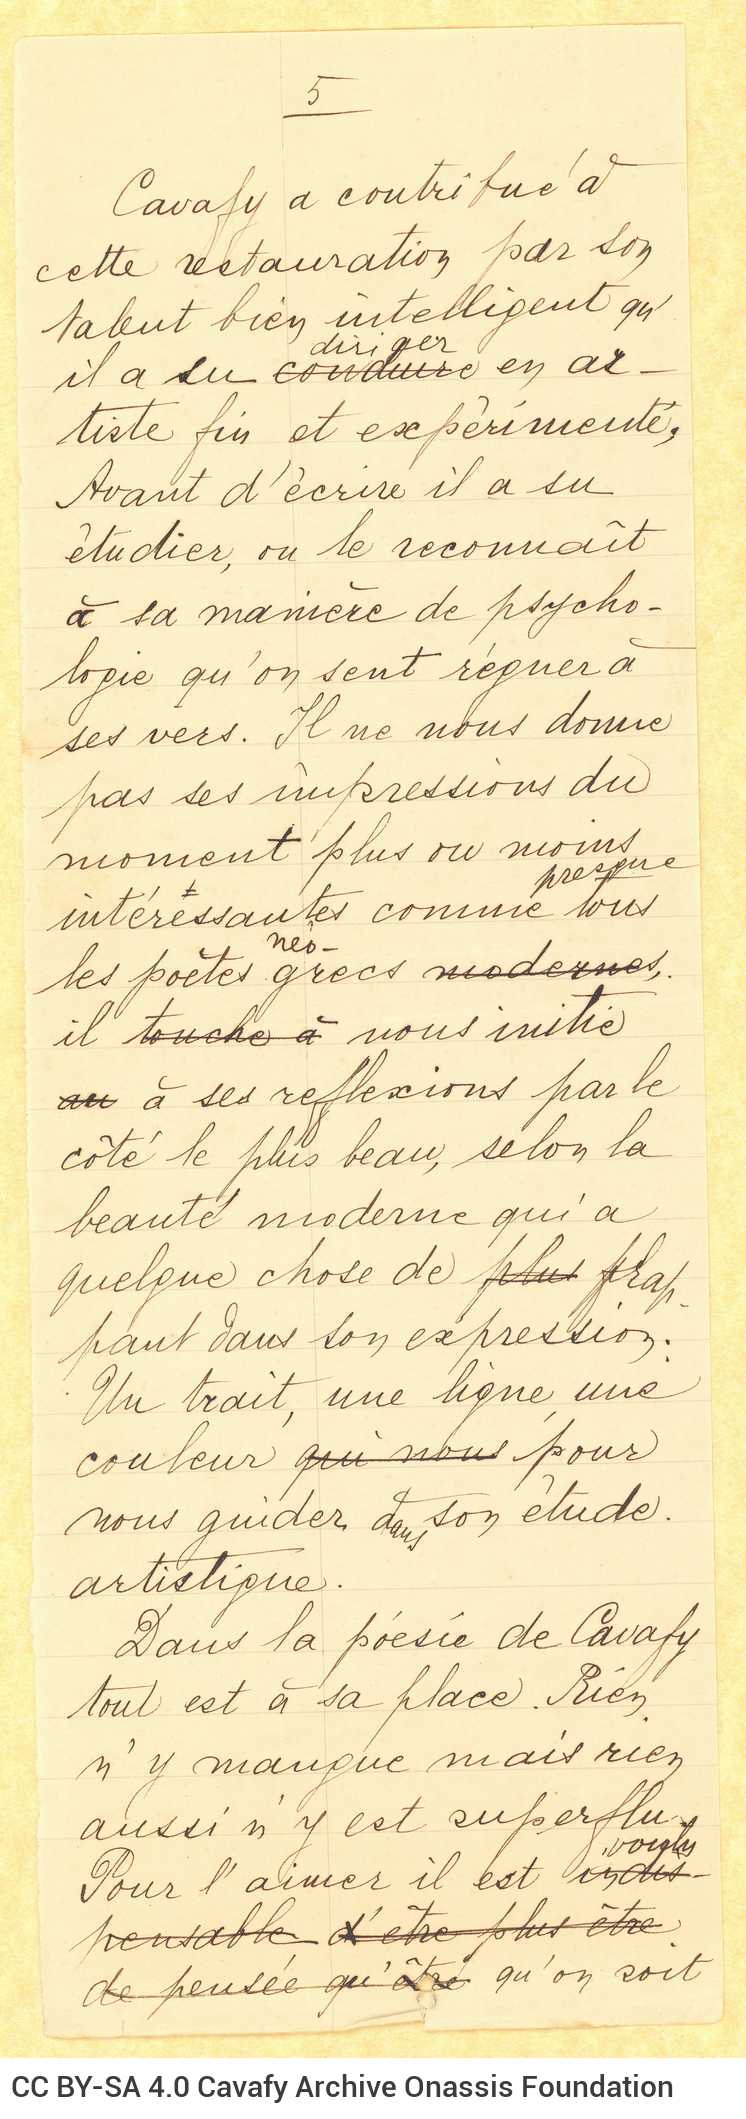 5
Cavafy a contribué à
cette restauration par son
talent bien intelligent qu'
diriger
il a su conduire en ar-
tiste fin et expérimenté,
Avant d'écrire il a su
étudier, on le reconnaît
à sa manière de psycho-
logie qu'on sent régner à
ses vers. Il ne nous donne
pas ses impressions du
moment plus ou moins
presque
intéressantes comme tous
néo-
les poètes grecs modernes,
il touche à nous initie
au à ses reflexions par le
côté le plus beau, selon la
beauté moderne qui a
quelque chose de plus frap-
pant dans son expression.
Un trait, une ligne, une
couleur qui nous pour
nous guider dans son étude.
artistique.
Dans la póesie de Cavafy
tout est à sa place. Rien
n'y manque mais rien
aussi n'y est superflu.
voulu
Pour l'aimer il est indis-
pensable d'être plus être
de pensée qu'être qu'on soit
CC BY-SA 4.0 Cavafy Archive Onassis Foundation